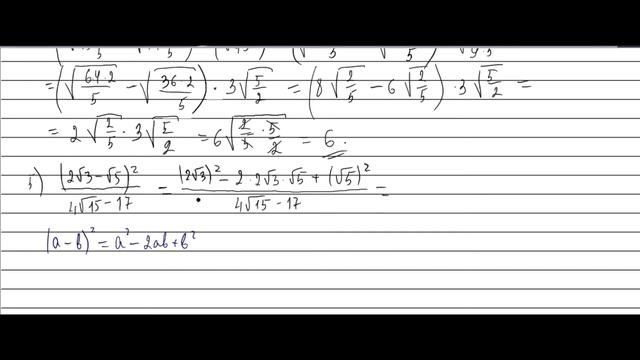 =(√(64·2/5) − √(36·2/5)) · 3√(5/2) = (8√(2/5) − 6√(2/5)) · 3√(5/2) =
= 2√(2/5) · 3√(5/2) = 6√(2/5 · 5/2) = 6.
(2√3 − √5)²/(4√15 − 17) = ((2√3)² − 2·2√3·√5 + (√5)²)/(4√15 − 17) =
(a − b)² = a² − 2ab + b²